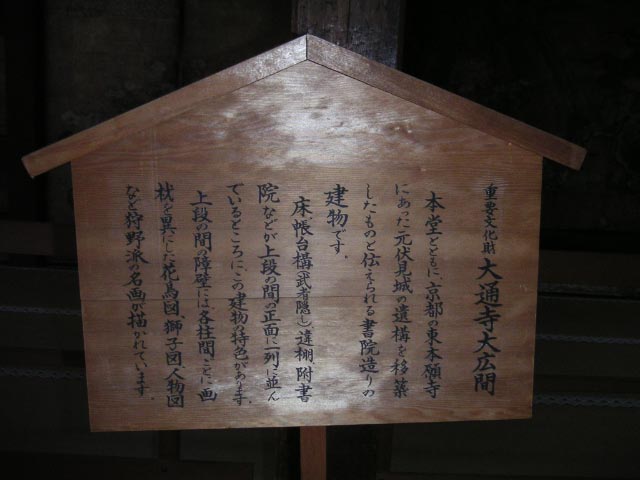 重要文化財 大通寺大広間
本堂とともに、京都の東本願寺
にあった元伏見城の遺構を移築
したものと伝えられる書院造りの
建物です。
床、帳台構(武者隠し)、違棚、附書
院などが上段の間の正面に一列に並ん
でいるところにこの建物の特色があります。
上段の間の障壁には各柱間ごとに画
枕を異にした花鳥図、獅子図、人物図
など狩野派の名画が描かれています。